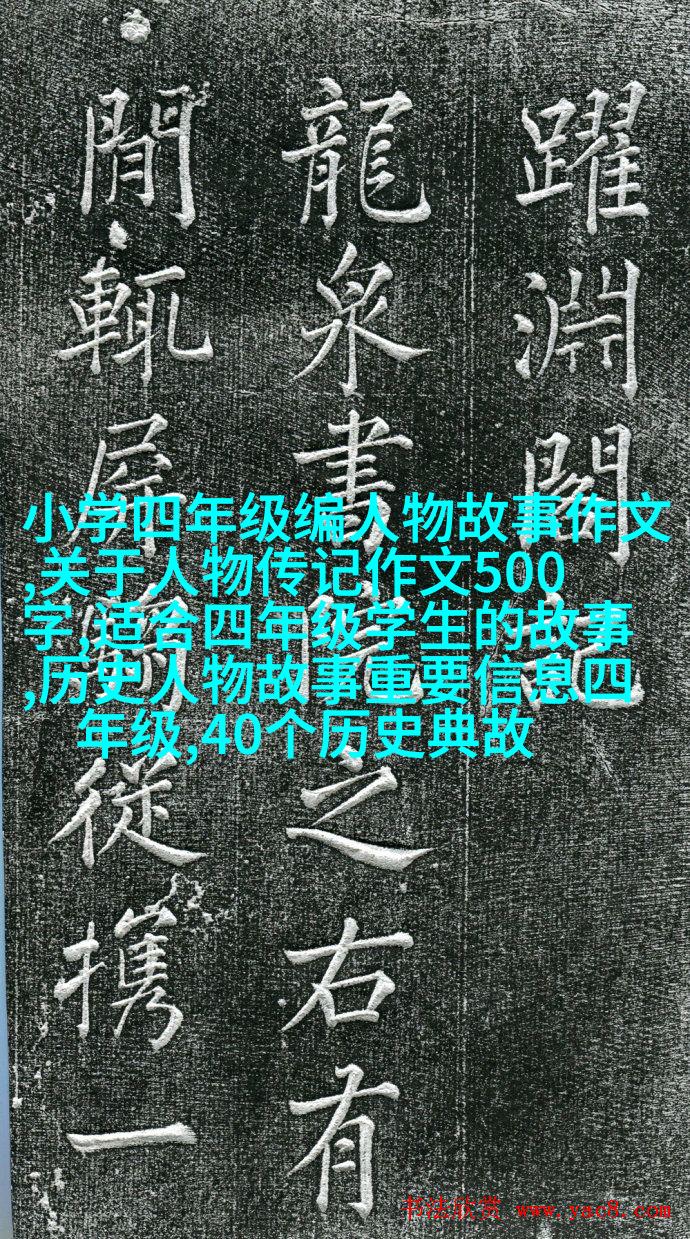 躍淵閣記
龍泉書院之右有
閒輒屏騶從攜一
小学四年级编人物故事作文
,关于人物传记作文500
字,适合四年级学生的故事
,历史人物故事重要信息四
年级,40个历史典故
书法欣赏 www.yac8.com